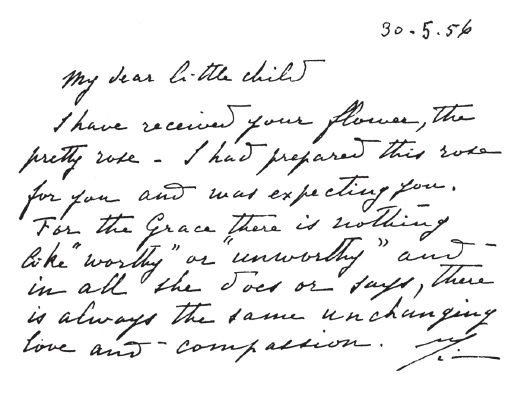 30.5.56
My dear little child
I have received your flower, the
pretty rose - I had prepared this rose
for you and was expecting you.
For the Grace there is nothing
like "worthy" or "unworthy" and
in all she does or says, there
is always the same unchanging
love and compassion.